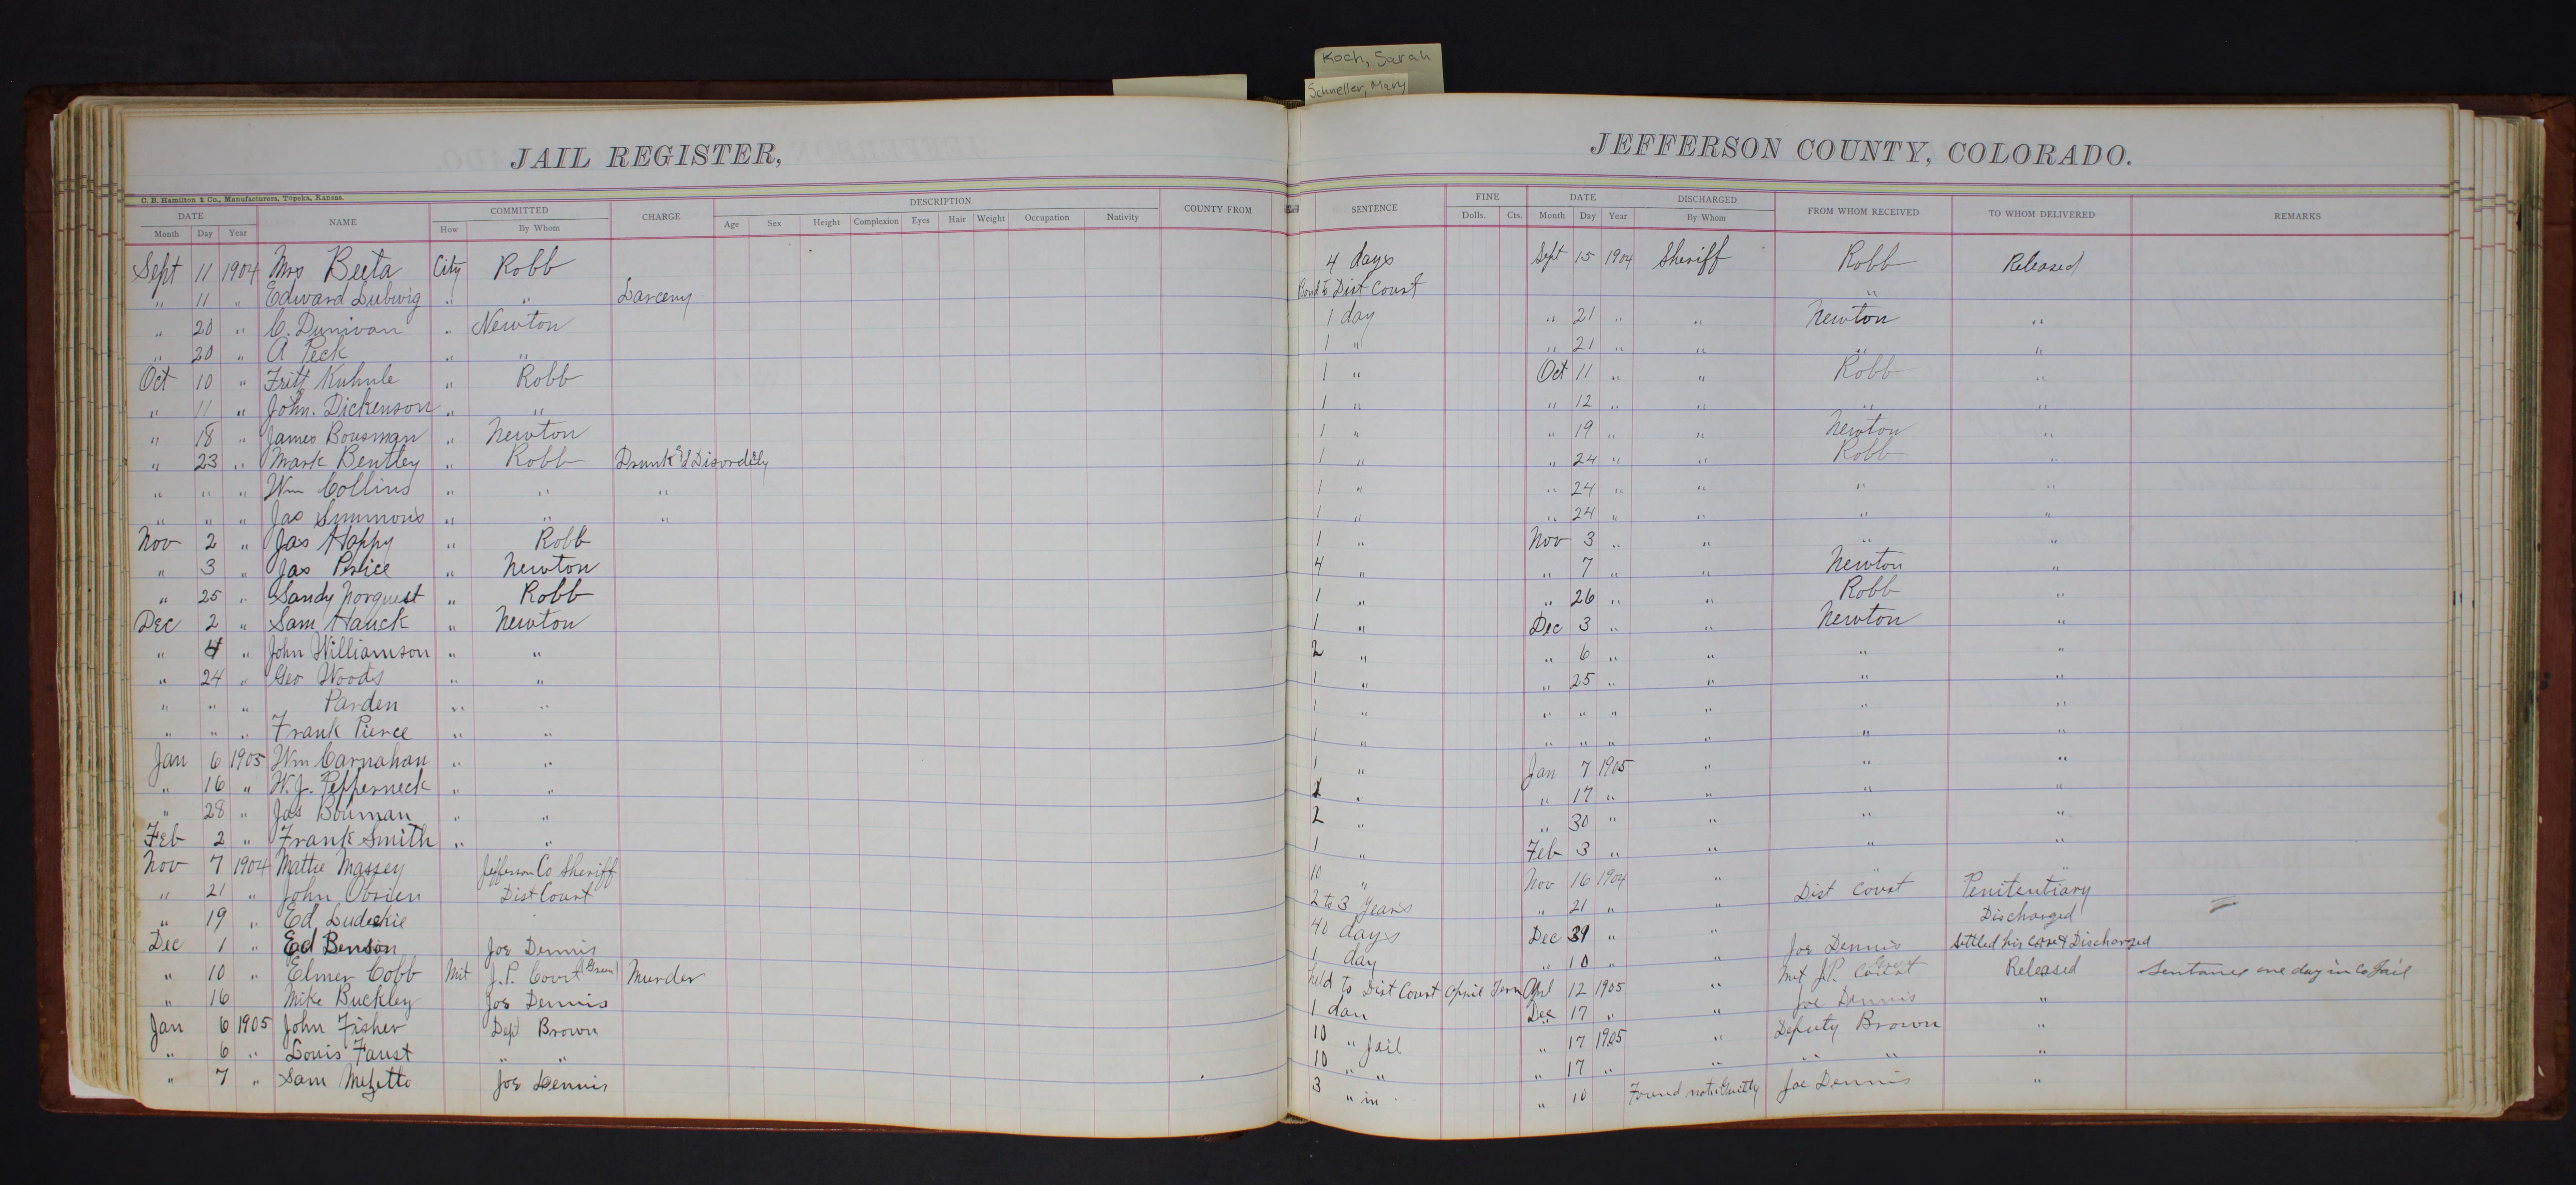 Koch, Sarah
Schneller, Mary
JAIL REGISTER,
JEFFERSON COUNTY, COLORADO.
C. B. Hamilton & Co., Manufacturers, Topeka, Kansas.
DATE NAME COMMITTED CHARGE DESCRIPTION COUNTY FROM SENTENCE FINE DATE DISCHARGED FROM WHOM RECEIVED TO WHOM DELIVERED REMARKS
Month Day Year How By Whom Age Sex Height Complexion Eyes Hair Weight Occupation Nativity Dolls. Cts. Month Day Year By Whom
Sept 11 1904 Mrs Beeta City Robb 4 days Sept 15 1904 Sheriff Robb Released
" 11 " Edward Lubwig " " Larceny Bond to Dist Court "
" 20 " C. Dunivan " Newton 1 day " 21 " " Newton "
" 20 " A Peck " " 1 " " 21 " " " "
Oct 10 " Fritz Kuhnle " Robb 1 " Oct 11 " " Robb "
" 11 " John. Dickenson " " 1 " " 12 " " " "
" 18 " James Bousman " Newton 1 " " 19 " " Newton "
" 23 " Mark Bentley " Robb Drunk & Disorderly 1 " " 24 " " Robb "
" " " Wm Collins " " " 1 " " 24 " " " "
" " " Jas Simmons " " " 1 " " 24 " " " "
Nov 2 " Jas Happy " Robb 1 " Nov 3 " " " "
" 3 " Jas Price " Newton 4 " " 7 " " Newton "
" 25 " Sandy Norquest " Robb 1 " " 26 " " Robb "
Dec 2 " Sam Hauck " Newton 1 " Dec 3 " " Newton "
" 4 " John Williamson " " 2 " " 6 " " " "
" 24 " Geo Woods " " 1 " " 25 " " " "
" " " Parden " " 1 " " " " " " "
" " " Frank Pierce " " 1 " " " " " " "
Jan 6 1905 Wm Carnahan " " 1 " Jan 7 1905 " " "
" 16 " W. J. Pepperneck " " 1 " " 17 " " " "
" 28 " Jas Bouman " " 2 " " 30 " " " "
Feb 2 " Frank Smith " " 1 " Feb 3 " " " "
Nov 7 1904 Mattie Massey Jefferson Co Sheriff 10 " Nov 16 1904 " " "
" 21 " John Obrien Dist Court 2 to 3 years " 21 " " Dist Court Penitentiary
" 19 " Ed Ludeckie 40 days Dec 31 " " Discharged
Dec 1 " Ed Benson Joe Dennis 1 day " 10 " " Joe Dennis Settled his case & Discharged
" 10 " Elmer Cobb Mit J.P. Court (Green) Murder held to Dist Court April Term Apl 12 1905 " Mit J.P. Court Released Sentance one day in Co Jail
" 16 Mike Buckley Joe Dennis 1 dan Dec 17 " " Joe Dennis "
Jan 6 1905 John Fisher Dept Brown 10 " Jail " 17 1905 " Deputy Brown "
" 6 " Louis Faust " " 10 " " " 17 " " " " "
" 7 " Sam Joe Dennis 3 " in " 10 Found not Guilty Joe Dennis "